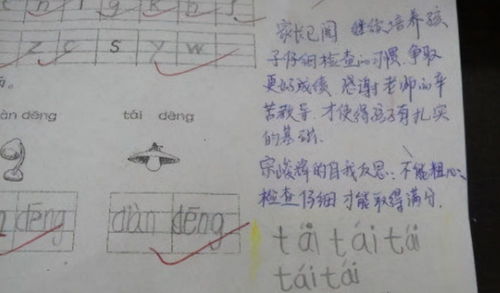 z c s y w
家长已阅 继续培养孩
子仔细检查的习惯,争取
更好成绩,感谢老师的辛
苦教导,才使得孩子有扎实
的基础.
宗峻辉的自我反思:不能粗心,
检查仔细才能取得满分.
àn dēng tái dēng
dēng diàn dēng
tái tái tái
tái tái